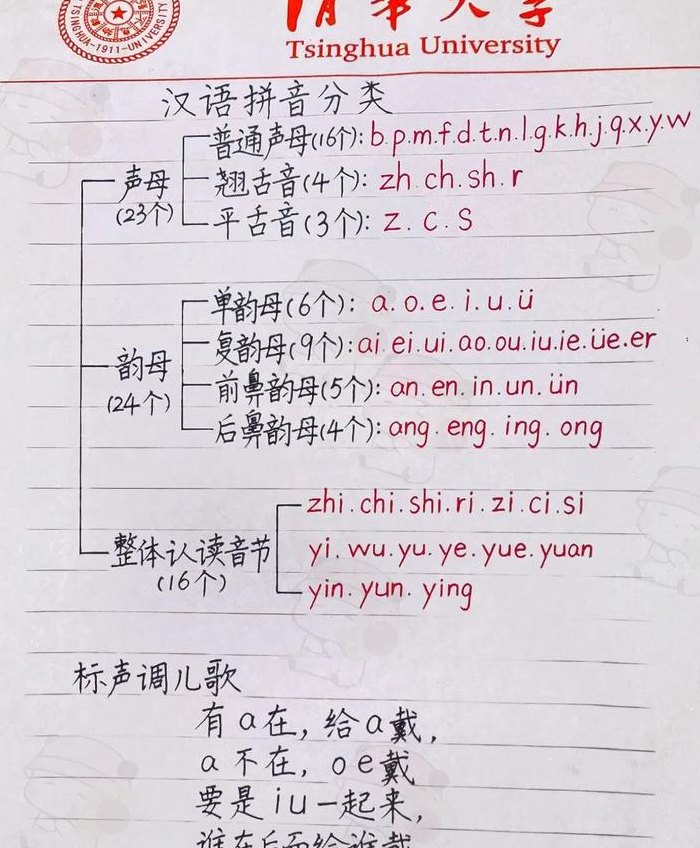 TSINGHUA-1911-UNIVERSITY
Tsinghua University
汉语拼音分类
普通声母(16个): b.p.m.f.d.t.n.l.g.k.h.j.q.x.y.w
声母
(23个)
翘舌音(4个): zh.ch.sh.r
平舌音(3个): z.c.s
单韵母(6个): a.o.e.i.u.ü
复韵母(9个): ai.ei.ui.ao.ou.iu.ie.üe.er
韵母
(24个)
前鼻韵母(5个): an.en.in.un.ün
后鼻韵母(4个): ang.eng.ing.ong
zhi.chi.shi.ri.zi.ci.si
整体认读音节
(16个)
yi.wu.yu.ye.yue.yuan
yin.yun.ying
标声调儿歌
有a在,给a戴,
a不在,oe戴
要是iu一起来,
谁在后面给谁戴